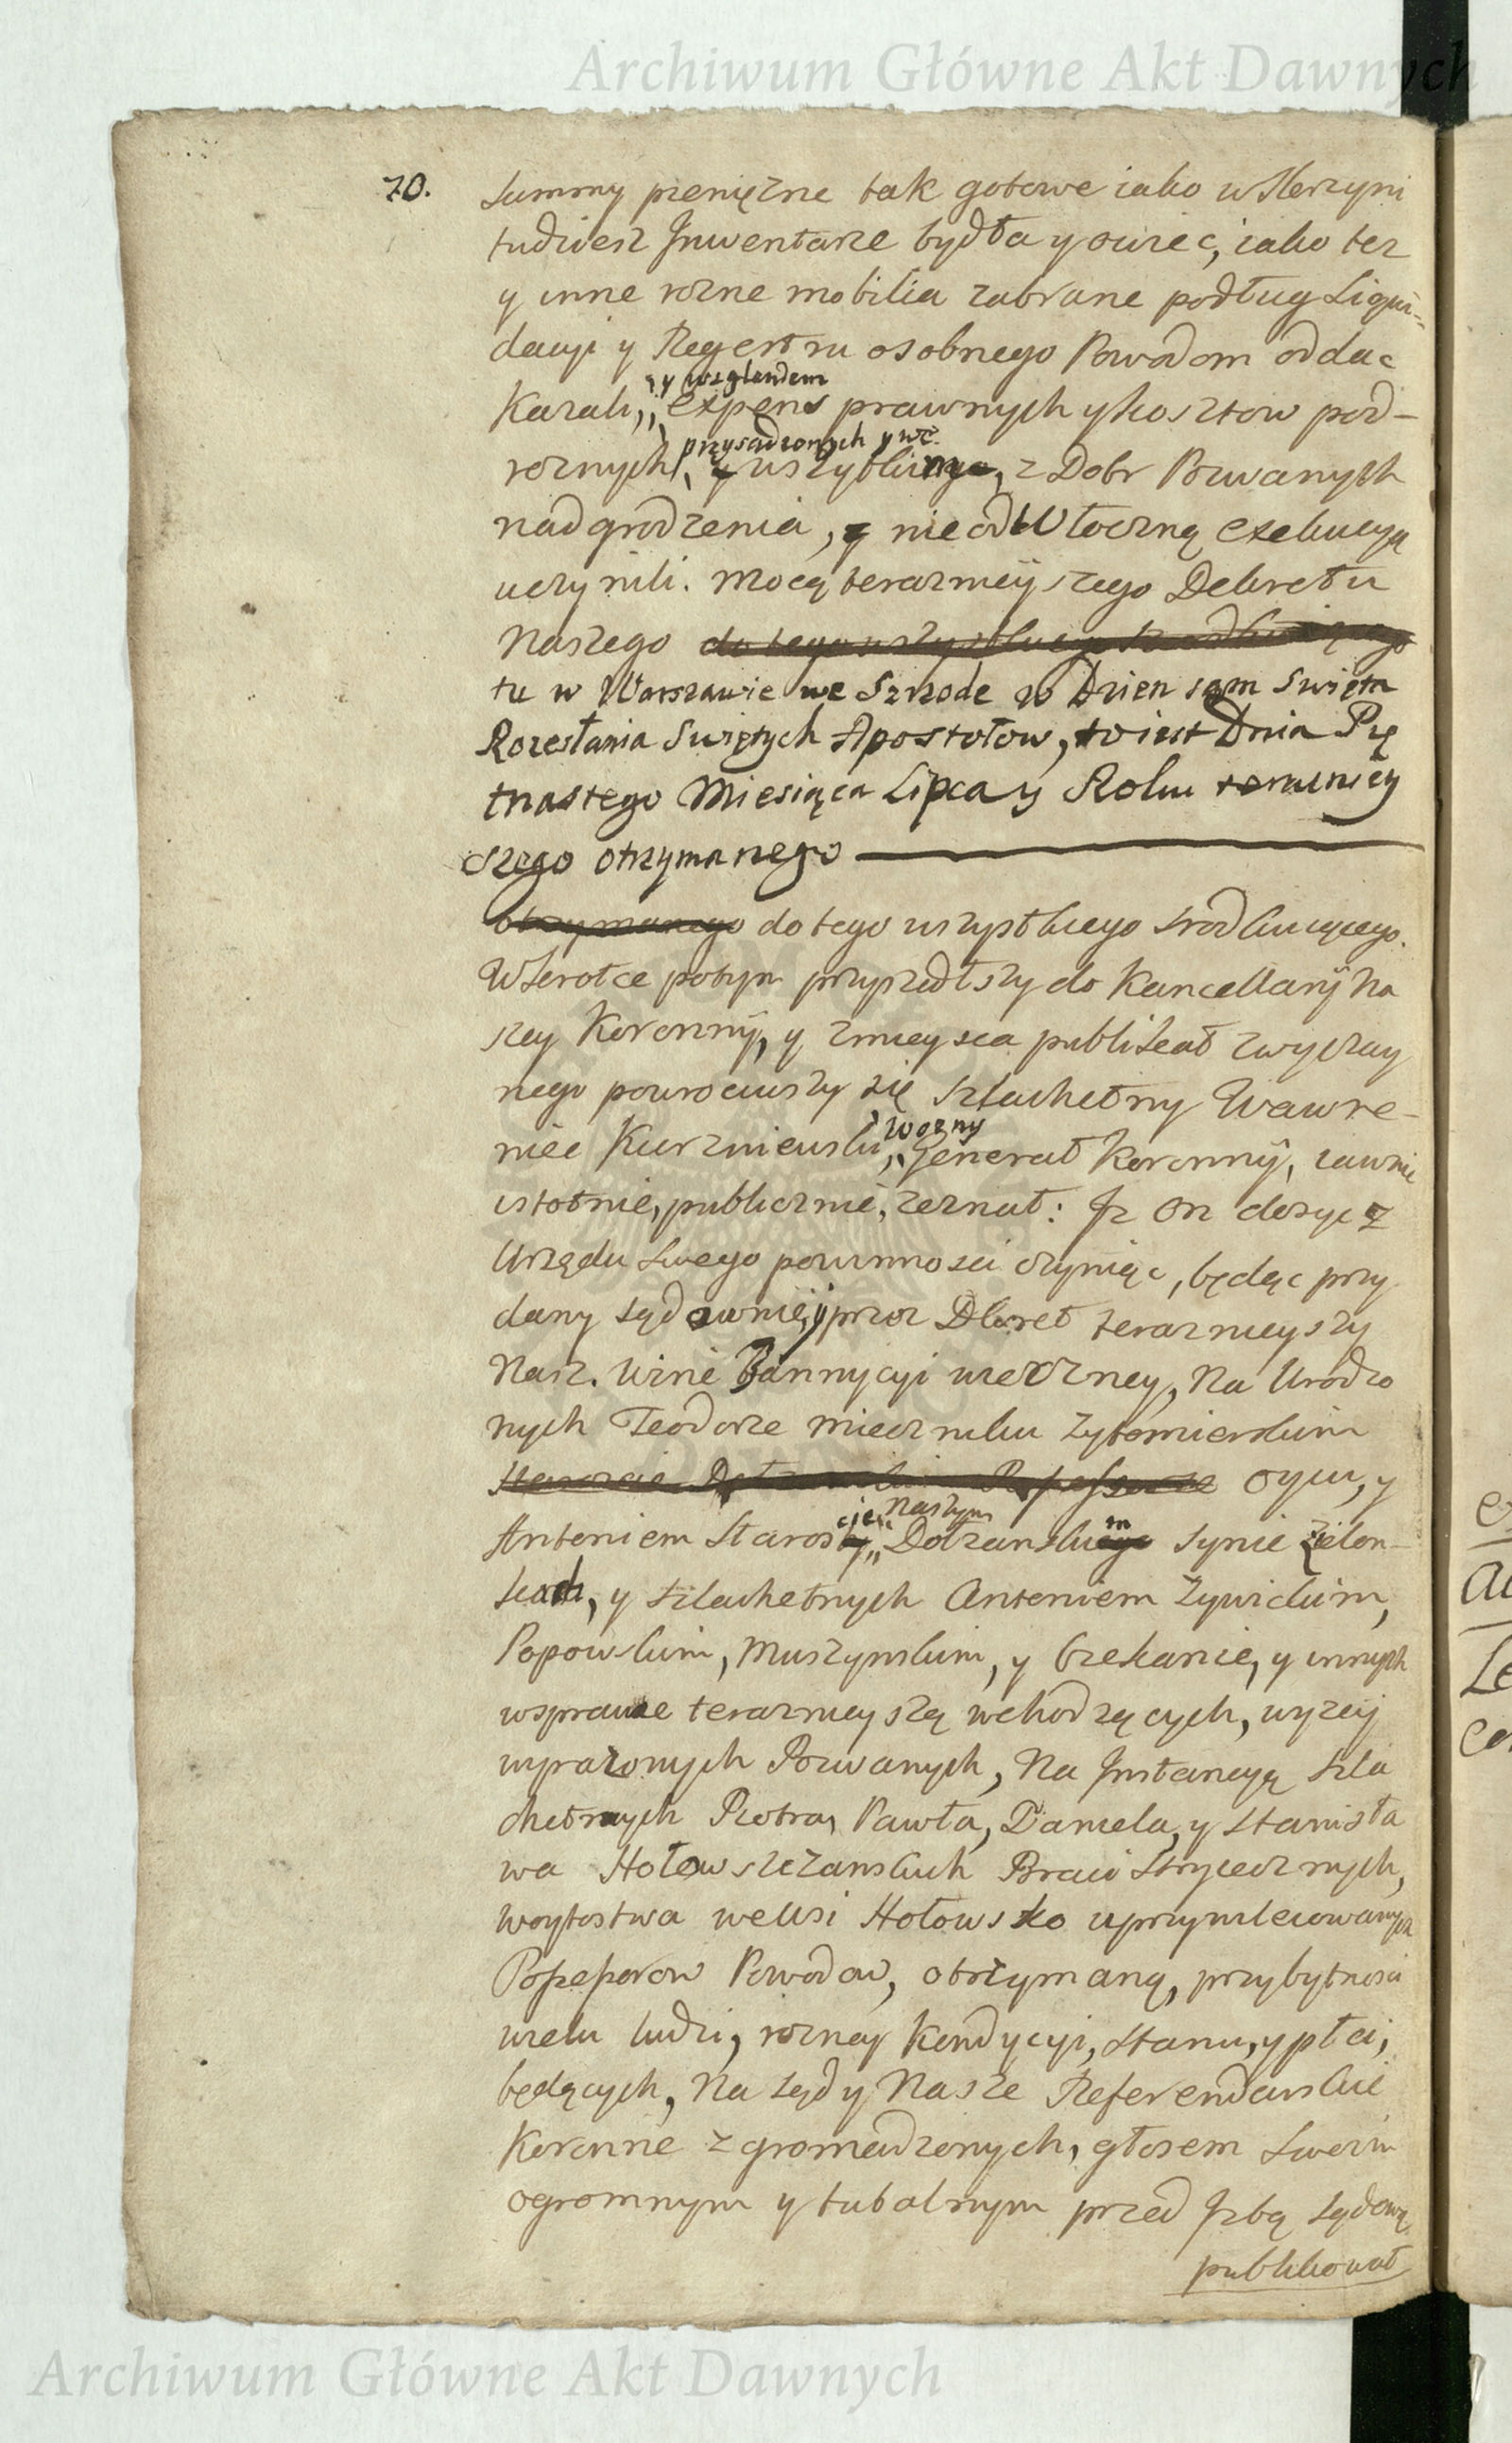 Archiwum Główne Akt Dawnych
70.
Summy pieniężne tak gotowe iako w Skrzyni
tudziesz Jnwentarze bydła y owiec, iako tez
y inne rozne mobilia zabrane podług Liqui-
dacyi y Regestru osobnego Powodom oddac
y wzglendem
Kazali, expens prawnych y kosztow pod-
przysądzonych y we.
roznych, z Dobr Pozwanych
nadgrodzenia, y nieodwłoczną exekucyą
uczynili. Mocą teraznieyszego Dekretu
Naszego do tego wszystkiego
tu w Warszawie we Szrzode w Dzien sam Swięta
Rozesłania Swiętych Apostołow, to iest Dnia Pię
tnastego Miesiąca Lipca y Roku terazniey
szego otrzymanego
otrzymanego do tego wszystkiego srodkuiącego.
Wkrotce potym przyszedłszy do Kancellaryi Na
szey Koronny, y z mieysca publikat zwyczay
nego powrociwszy się szlachetny Wawrze-
Wozny
niec Kurzniewski, Generał Koronny, iawnie
istotnie, publicznie, zeznał: Jz on dosyc z
Urzędu swego powinnosci czyniąc, będąc przy
dany sądownie, y przez Dekret teraznieyszy
Nasz. Winę Bannicyi wieczney, Na Urodzo
nych Teodorze Mieczniku Zytomierskim
Oycu, y
cie Naszym
Antoniem Staros Dolzanskim Synie Zielon-
kach, y szlachetnych Antoniem Zywickim,
Popowskim, Muszynskim, y Grekanie, y innych
w sprawe teraznieyszą wchodzących, wyzey
wyrazonych Pozwanych, Na Jnstancyą szla
chetnych Piotra, Pawła, Daniela, y Stanisła
wa Hołowszczanskich Braci Stryiecznych,
Woytostwa we Wsi Hołowsko uprzywileiowanych
Possessorow Powodow, otrzymaną, przy bytnosci
wielu ludzi, rozney Kondycyi, Stanu, y płci,
będących, Na Sądy Nasze Referendarskie
Koronne zgromadzonych, głosem swoim
ogromnym y tubalnym przed Jzbą Sądową
publikował
Archiwum Główne Akt Dawnych